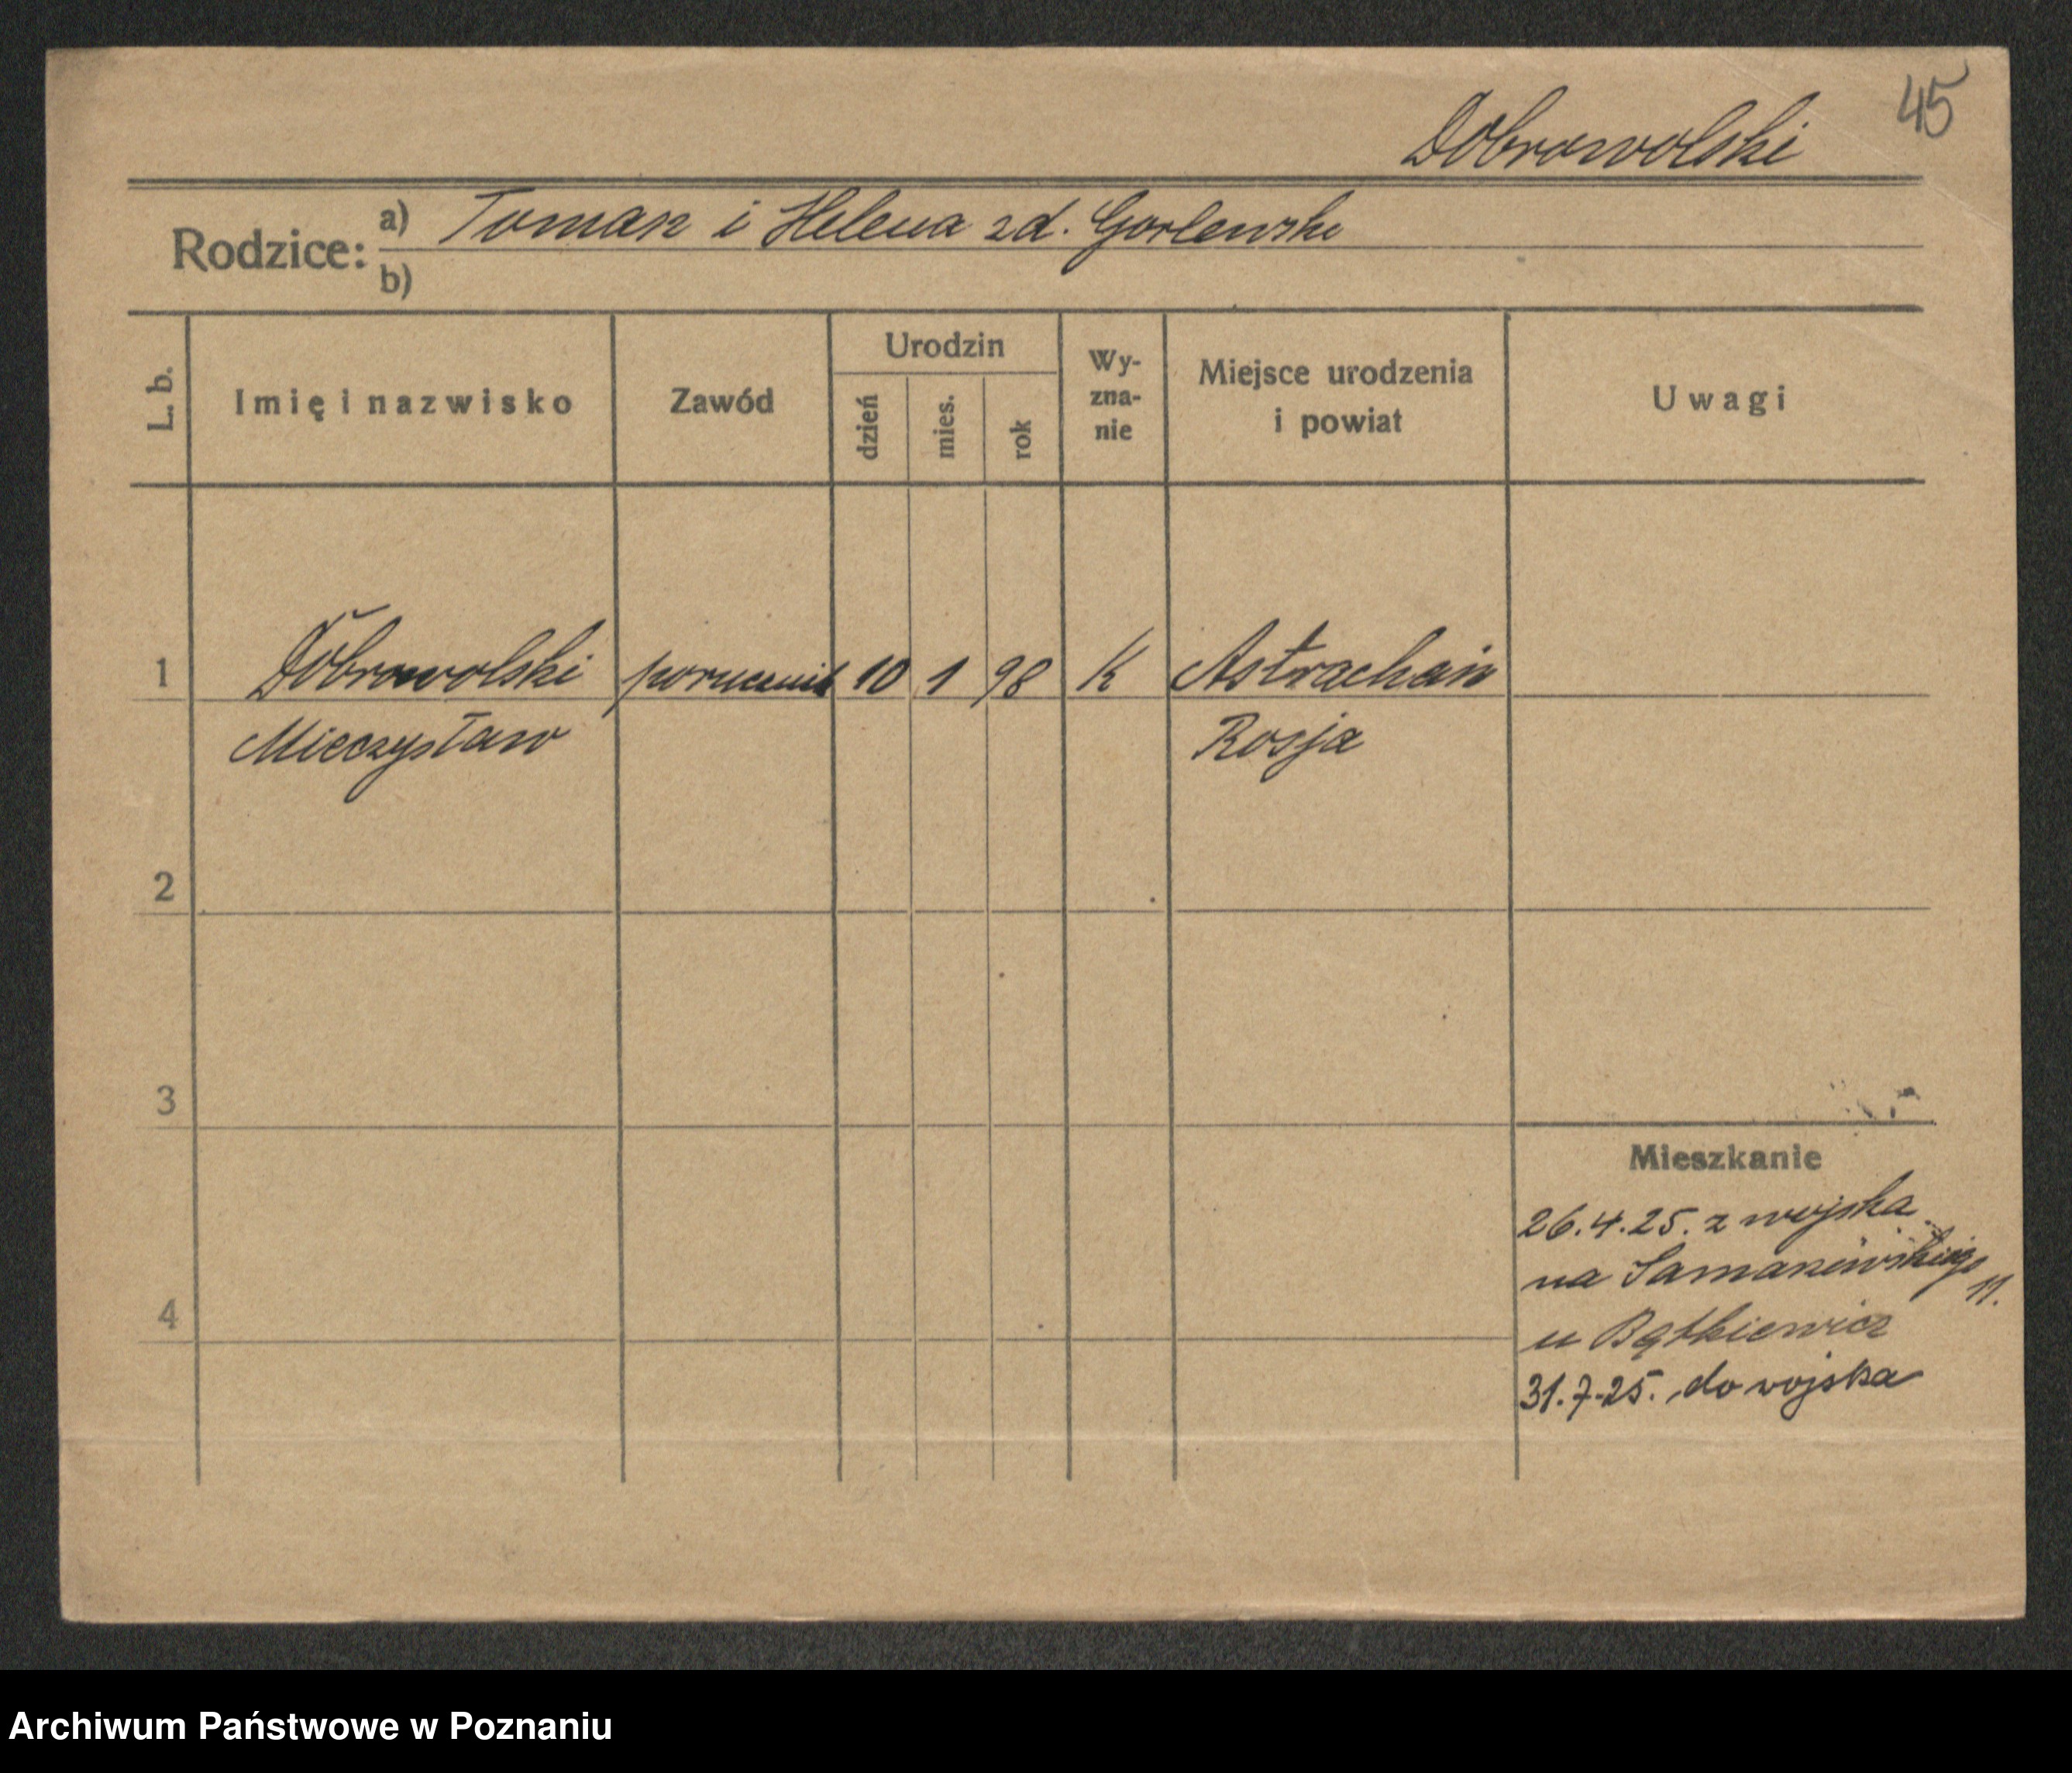 45
Dobrowolski
Rodzice: a) Tomasz i Helena zd. Gorlewski
b)
L. b.
Imię i nazwisko
Zawód
Urodzin
dzień
mies.
rok
Wy-
zna-
nie
Miejsce urodzenia
i powiat
Uwagi
1 Dobrowolski porucznik 10 1 98 K Astrachań
Mieczysław Rosja
2
3
4
Mieszkanie
26.4.25. z wojska
na Samarzewskiego 11.
u Bątkiewicz
31.7.25. do wojska
Archiwum Państwowe w Poznaniu